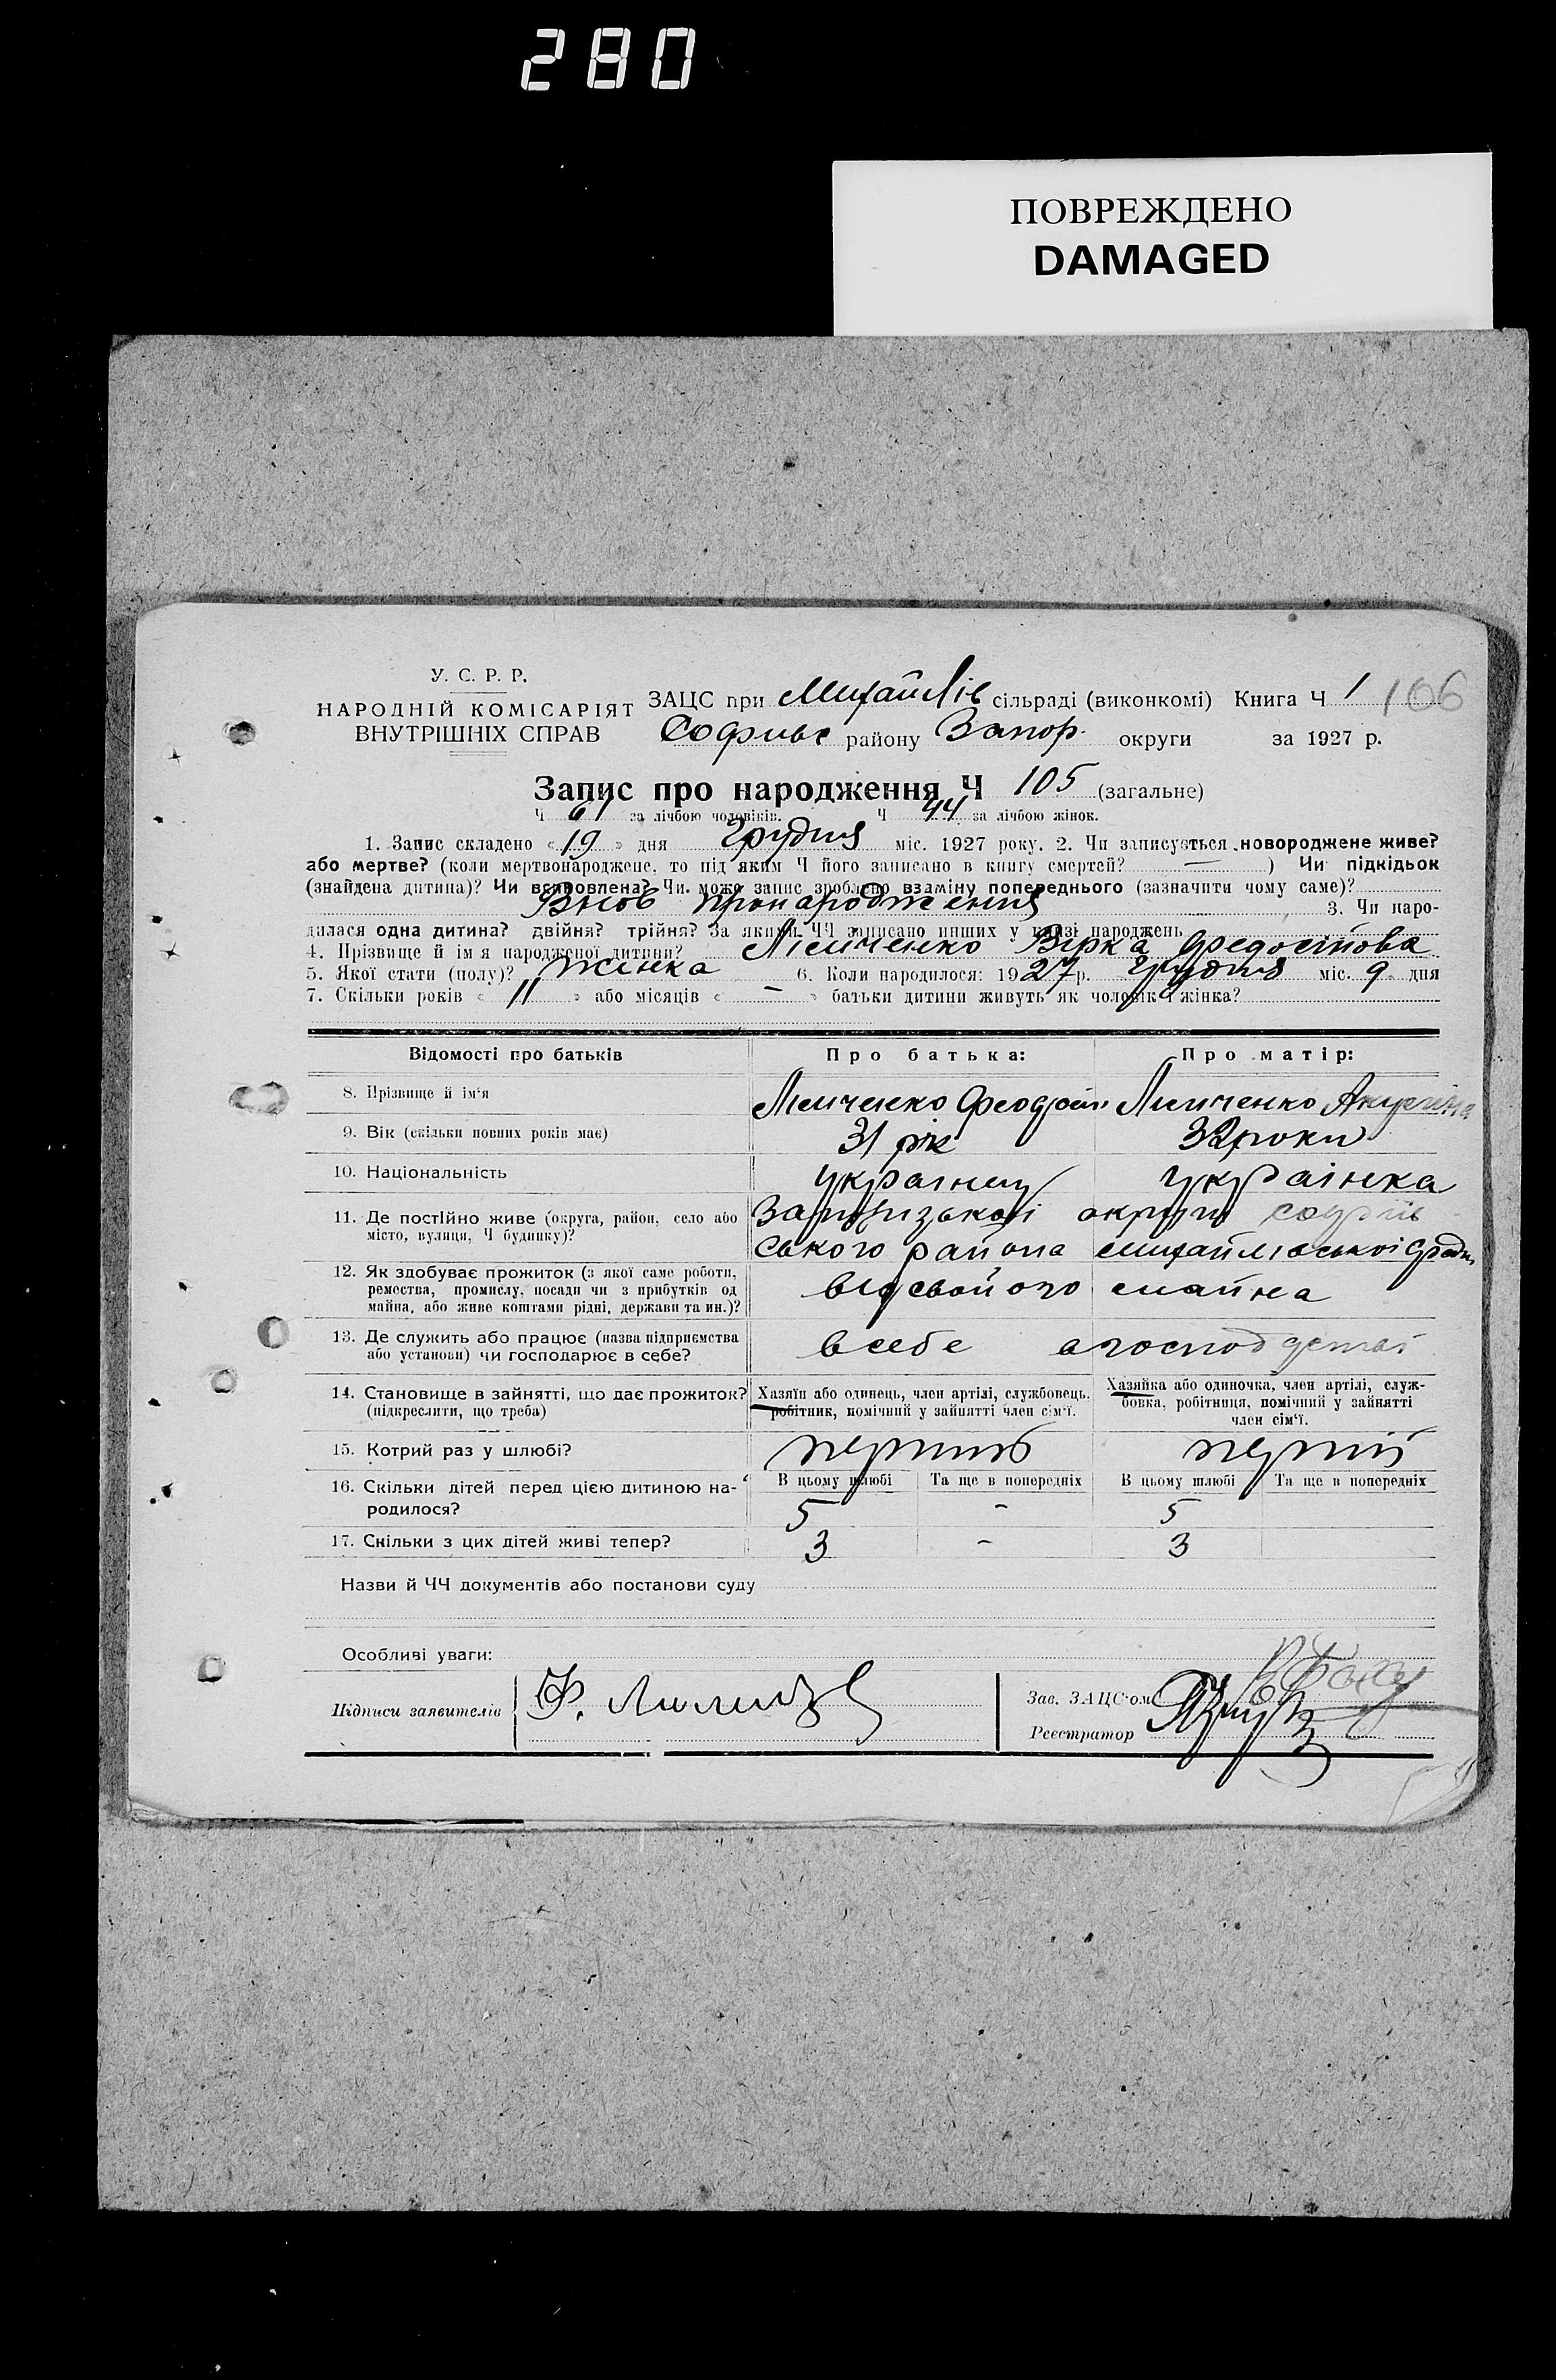 280
ПОВРЕЖДЕНО
DAMAGED
У. С. Р. Р.
НАРОДНІЙ КОМІСАРІЯТ
ВНУТРІШНІХ СПРАВ
ЗАЦС при Михайлів сільраді (виконкомі) Книга Ч 1 106
Софиьвс району Запор. округи за 1927 р.
Запис про народження Ч 105 (загальне)
Ч 61 за лічбою чоловіків. Ч 44 за лічбою жінок.
1. Запис складено « 19 » дня Грудня міс. 1927 року. 2. Чи записується новороджене живе?
або мертве? (коли мертвонароджене, то під яким Ч його записано в книгу смертей? — ) Чи підкідьок
(знайдена дитина)? Чи всиновлена? Чи може запис зроблено взаміну попереднього (зазначити чому саме)?
Внов пронародження 3. Чи наро-
дилася одна дитина? двійня? трійня? За якими ЧЧ записано инших у книзі народжень
4. Прізвище й ім'я народженої дитини? Вірка
5. Якої стати (полу)? Жінка 6. Коли народилося: 1927 р. Грудня міс. 9 дня
7. Скільки років « 11 » або місяців « — » батьки дитини живуть як чоловік і жінка?
Відомості про батьків
Про батька:
Про матір:
8. Прізвище й ім'я
9. Вік (скільки повних років має) 31 рік 32 роки
10. Національність українец українка
11. Де постійно живе (округа, район, село або
місто, вулиця, Ч будинку)?
Запорізької округи софиїв
ського района михайлівської
12. Як здобуває прожиток (з якої саме роботи,
ремества, промислу, посади чи з прибутків од
майна, або живе коштами рідні, держави та ин.)?
від свойого майна
13. Де служить або працює (назва підприємства
або установи) чи господарює в себе?
в себе
14. Становище в зайнятті, що дає прожиток?
(підкреслити, що треба)
Хазяїн або одинець, член артілі, службовець,
робітник, помічний у зайнятті член сім'ї.
Хазяйка або одиночка, член артілі, служ-
бовка, робітниця, помічний у зайнятті
член сім'ї.
15. Котрий раз у шлюбі?
16. Скільки дітей перед цією дитиною на-
родилося?
В цьому шлюбі Та ще в попередніх В цьому шлюбі Та ще в попередніх
5 - 5
17. Скільки з цих дітей живі тепер? 3 - 3
Назви й ЧЧ документів або постанови суду
Особливі уваги:
Підписи заявителів
Зав. ЗАЦС'ом
Реєстратор